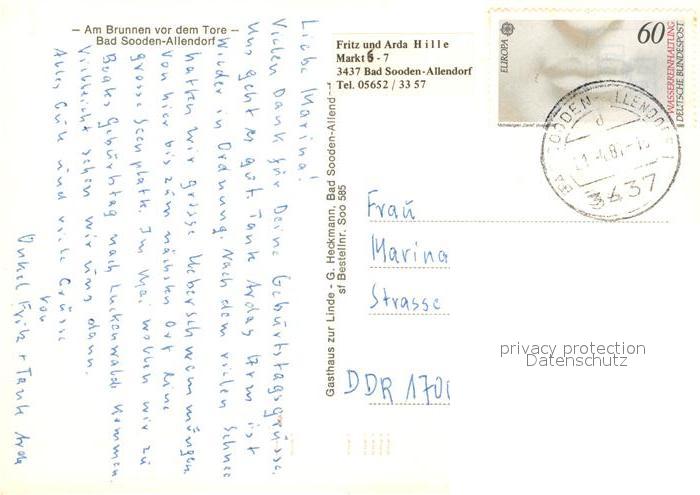 — Am Brunnen vor dem Tore —
Bad Sooden-Allendorf
Liebe Marina!
Vielen Dank für Deine Geburtstagsgrüsse.
Uns geht es gut. Tante Ardas Arm ist
wieder in Ordnung. Nach dem vielen Schnee
hatten wir grosse Ueberschwemmungen
von hier bis zum nächsten Ort eine
grosse Seenplatte. Im Mai wollen wir zu
Beates Geburtstag nach Luckenwalde kommen.
Vielleicht sehen wir uns dann.
Alles Gute und viele Grüsse
von
Onkel Fritz + Tante Arda
Gasthaus zur Linde - G. Heckmann, Bad Sooden-Allend
sf Bestellnr. Soo 585
Fritz und Arda Hille
Markt 6 - 7
3437 Bad Sooden-Allendorf
Tel. 05652 / 33 57
EUROPA
60
WASSERREINHALTUNG
DEUTSCHE BUNDESPOST
SOODEN LLENDORF
d
3437
Frau
Marina
Strasse
DDR 170
privacy protection
Datenschutz